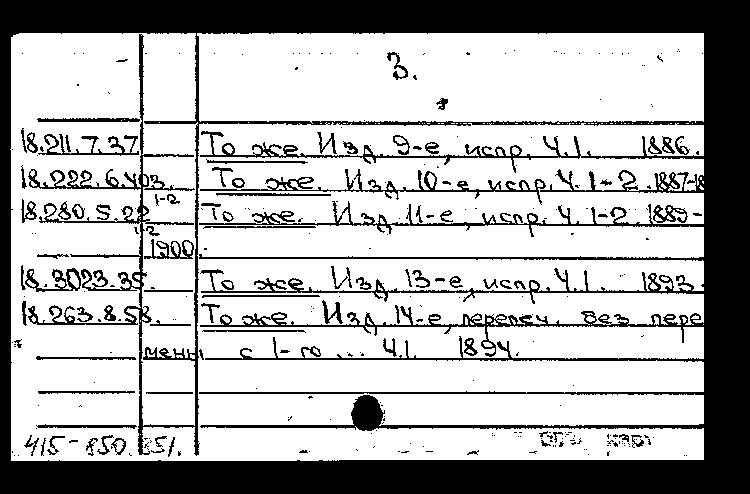 3.
18.211.7.37 То же. Изд. 9-е, испр. Ч.1. 1886.
18.222.6.403. То же. Изд. 10-е, испр. Ч. 1-2. 1887-18
1-2
18.280.5.22 То же. Изд. 11-е, испр. Ч. 1-2. 1889-
1-2
1900.
18.3023.35. То же. Изд. 13-е, испр. Ч.1. 1893.
18.263.8.58. То же. Изд. 14-е, перепеч. без пере
мены с 1-го ... Ч.1. 1894.
415-850.851.